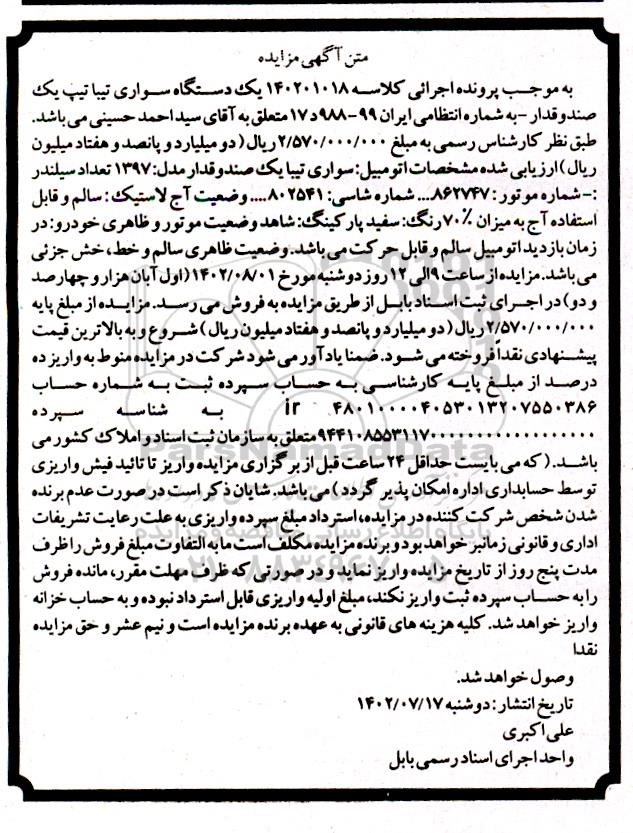 متن آگهی مزایده
به موجب پرونده اجرائی کلاسه ۱۴۰۲۰۱۰۱۸ یک دستگاه سواری تیبا تیپ یک
صندوقدار -به شماره انتظامی ایران ۹۹-۹۸۸د۱۷متعلق به آقای سید احمد حسینی می باشد.
طبق نظر کارشناس رسمی به مبلغ ۲/۵۷۰/۰۰۰/۰۰۰ ریال ( دو میلیارد و پانصد و هفتاد میلیون
ریال ) ارزیابی شده مشخصات اتومبیل: سواری تیبا یک صندوقدار مدل: ۱۳۹۷ تعداد سیلندر
:- شماره موتور : ۸۶۲۷۴۷.... شماره شاسی: ۸۰۲۵۴۱.... وضعیت آج لاستیک : سالم و قابل
استفاده آج به میزان ۷۰٪ رنگ: سفید پارکینگ: شاهد وضعیت موتور و ظاهری خودرو: در
زمان بازدید اتومبیل سالم و قابل حرکت می باشد. وضعیت ظاهری سالم و خط، خش جزئی
می باشد. مزایده از ساعت ۹ الی ۱۲ روز دوشنبه مورخ ۱۴۰۲/۰۸/۰۱ (اول آبان هزار و چهارصد
و دو) در اجرای ثبت اسناد بابل از طریق مزایده به فروش می رسد. مزایده از مبلغ پایه
۲/۵۷۰/۰۰۰/۰۰۰ ریال ( دو میلیارد و پانصد و هفتاد میلیون ریال ) شروع و به بالاترین قیمت
پیشنهادی نقداً فروخته می شود. ضمنا یادآور می شود شرکت در مزایده منوط به واریز ده
درصد از مبلغ پایه کارشناسی به حساب سپرده ثبت به شماره حساب
ir ۴۸۰۱۰۰۰۰۴۰۵۳۰۱۳۲۰۷۵۵۰۳۸۶ به شناسه سپرده
۹۴۴۱۰۸۵۵۳۱۱۷۰۰۰۰۰۰۰۰۰۰۰۰۰۰۰۰۰۰ متعلق به سازمان ثبت اسناد و املاک کشور می
باشد. ( که می بایست حداقل ۲۴ ساعت قبل از برگزاری مزایده واریز تا تائید فیش واریزی
توسط حسابداری اداره امکان پذیر گردد ) می باشد. شایان ذکر است در صورت عدم برنده
شدن شخص شرکت کننده در مزایده، استرداد مبلغ سپرده واریزی به علت رعایت تشریفات
اداری و قانونی زمانبر خواهد بود و برنده مزایده مکلف است مابه التفاوت مبلغ فروش را ظرف
مدت پنج روز از تاریخ مزایده واریز نماید و در صورتی که ظرف مهلت مقرر، مانده فروش
را به حساب سپرده ثبت واریز نکند، مبلغ اولیه واریزی قابل استرداد نبوده و به حساب خزانه
واریز خواهد شد. کلیه هزینه های قانونی به عهده برنده مزایده است و نیم عشر و حق مزایده
نقدا
وصول خواهد شد.
تاریخ انتشار : دوشنبه ۱۴۰۲/۰۷/۱۷
علی اکبری
واحد اجرای اسناد رسمی بابل
ParsNamadData
پایگاه اطلاع رسانی مناقصه و مزایده